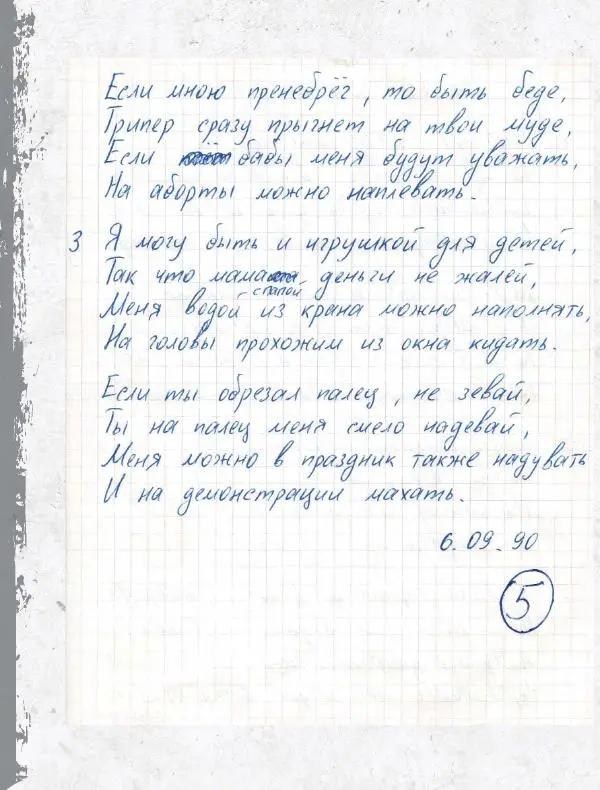 Если мною пренебрёг, то быть беде,
Трипер сразу прыгнет на твои муде,
Если бабы меня будут уважать,
На аборты можно наплевать.
3 Я могу быть и игрушкой для детей,
Так что мама с папой, деньги не жалей,
Меня водой из крана можно наполнять,
На головы прохожим из окна кидать.
Если ты обрезал палец, не зевай,
Ты на палец меня смело надевай,
Меня можно в праздник также надувать
И на демонстрации махать.
6.09.90
5